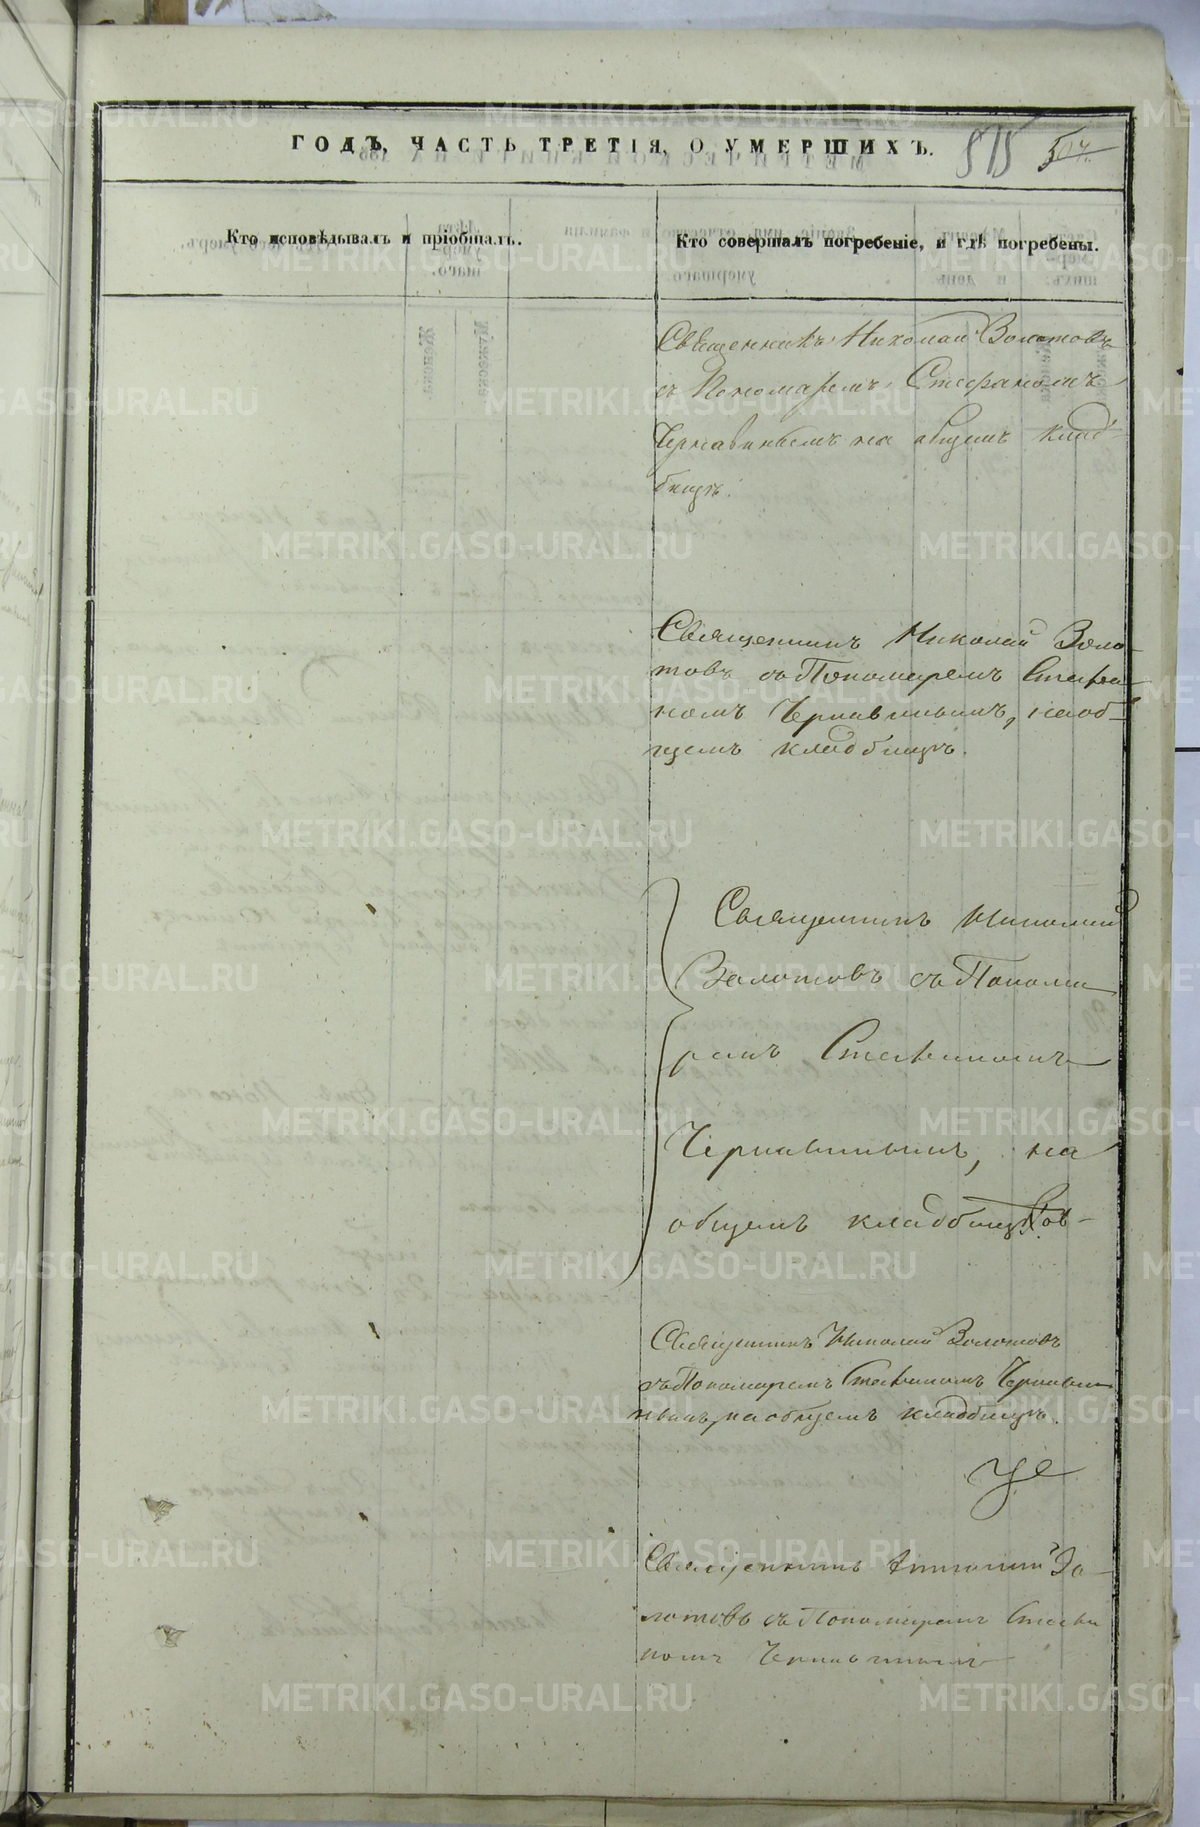 ГОДЪ, ЧАСТЬ ТРЕТІЯ, О УМЕРШИХЪ.
515
504.
Кто исповѣдывалъ и пріобщалъ.
Кто совершалъ погребеніе, и гдѣ погребены.
Священникъ Николай Золотовъ
съ Пономаремъ Стефаномъ
Чернавинымъ на общемъ клад-
бищѣ.
Священникъ Николай Золо-
товъ съ Пономаремъ Стефа-
номъ Чернавинымъ, на об-
щемъ кладбищѣ.
Священникъ Николай
Золотовъ съ Понома-
ремъ Стефаномъ
Чернавинымъ, на
общемъ кладбищѣ
Священникъ Николай Золотовъ
съ Пономаремъ Стефаномъ Чернави-
нымъ, на общемъ кладбищѣ.
Священникъ Зо-
лотовъ съ Пономаремъ Стефа
номъ Чернавинымъ
METRIKI.GASO-URAL.RU